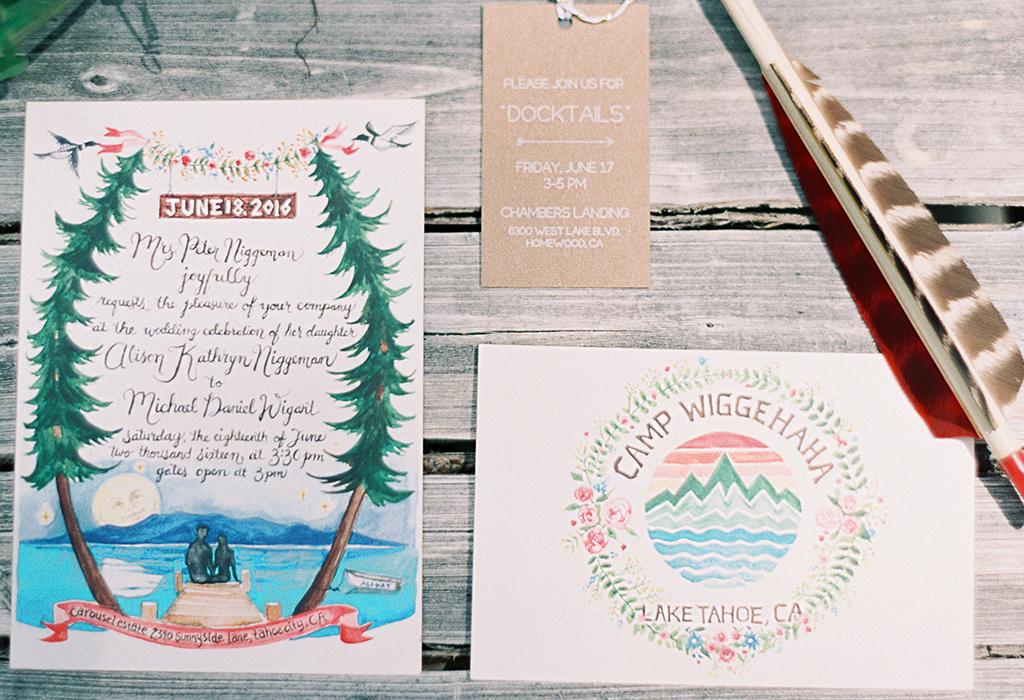 JUNE 18. 2016
Mrs. Peter Niggeman
joyfully
requests the pleasure of your company
at the wedding celebration of her daughter
Alison Kathryn Niggeman
to
Michael Daniel Wigart
saturday, the eighteenth of June
two thousand sixteen at 3:30 pm
gates open at 3pm
ALI-KAT
Carousel estate 2390 Sunnyside lane, tahoe city, CA
PLEASE JOIN US FOR
"DOCKTAILS"
FRIDAY, JUNE 17
3-5 PM
CHAMBERS LANDING
6300 WEST LAKE BLVD.
HOMEWOOD, CA
CAMP WIGGEHAHA
LAKE TAHOE, CA